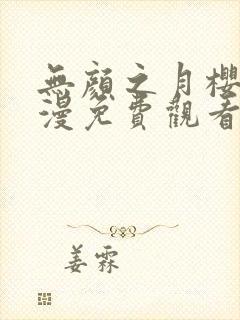 無顏之月櫻
漫免費觀看
姜霖